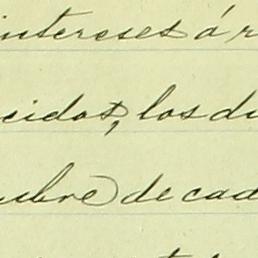 intereses á r
cidos, los du
mbre de cad